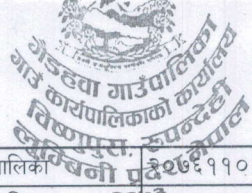 गैडहवा गाउँपालिका
गाउँ कार्यपालिकाको कार्यालय
विष्णुपुरा, रुपन्देही
लुम्बिनी प्रदेश, नेपाल
पालिका
२०७६११०